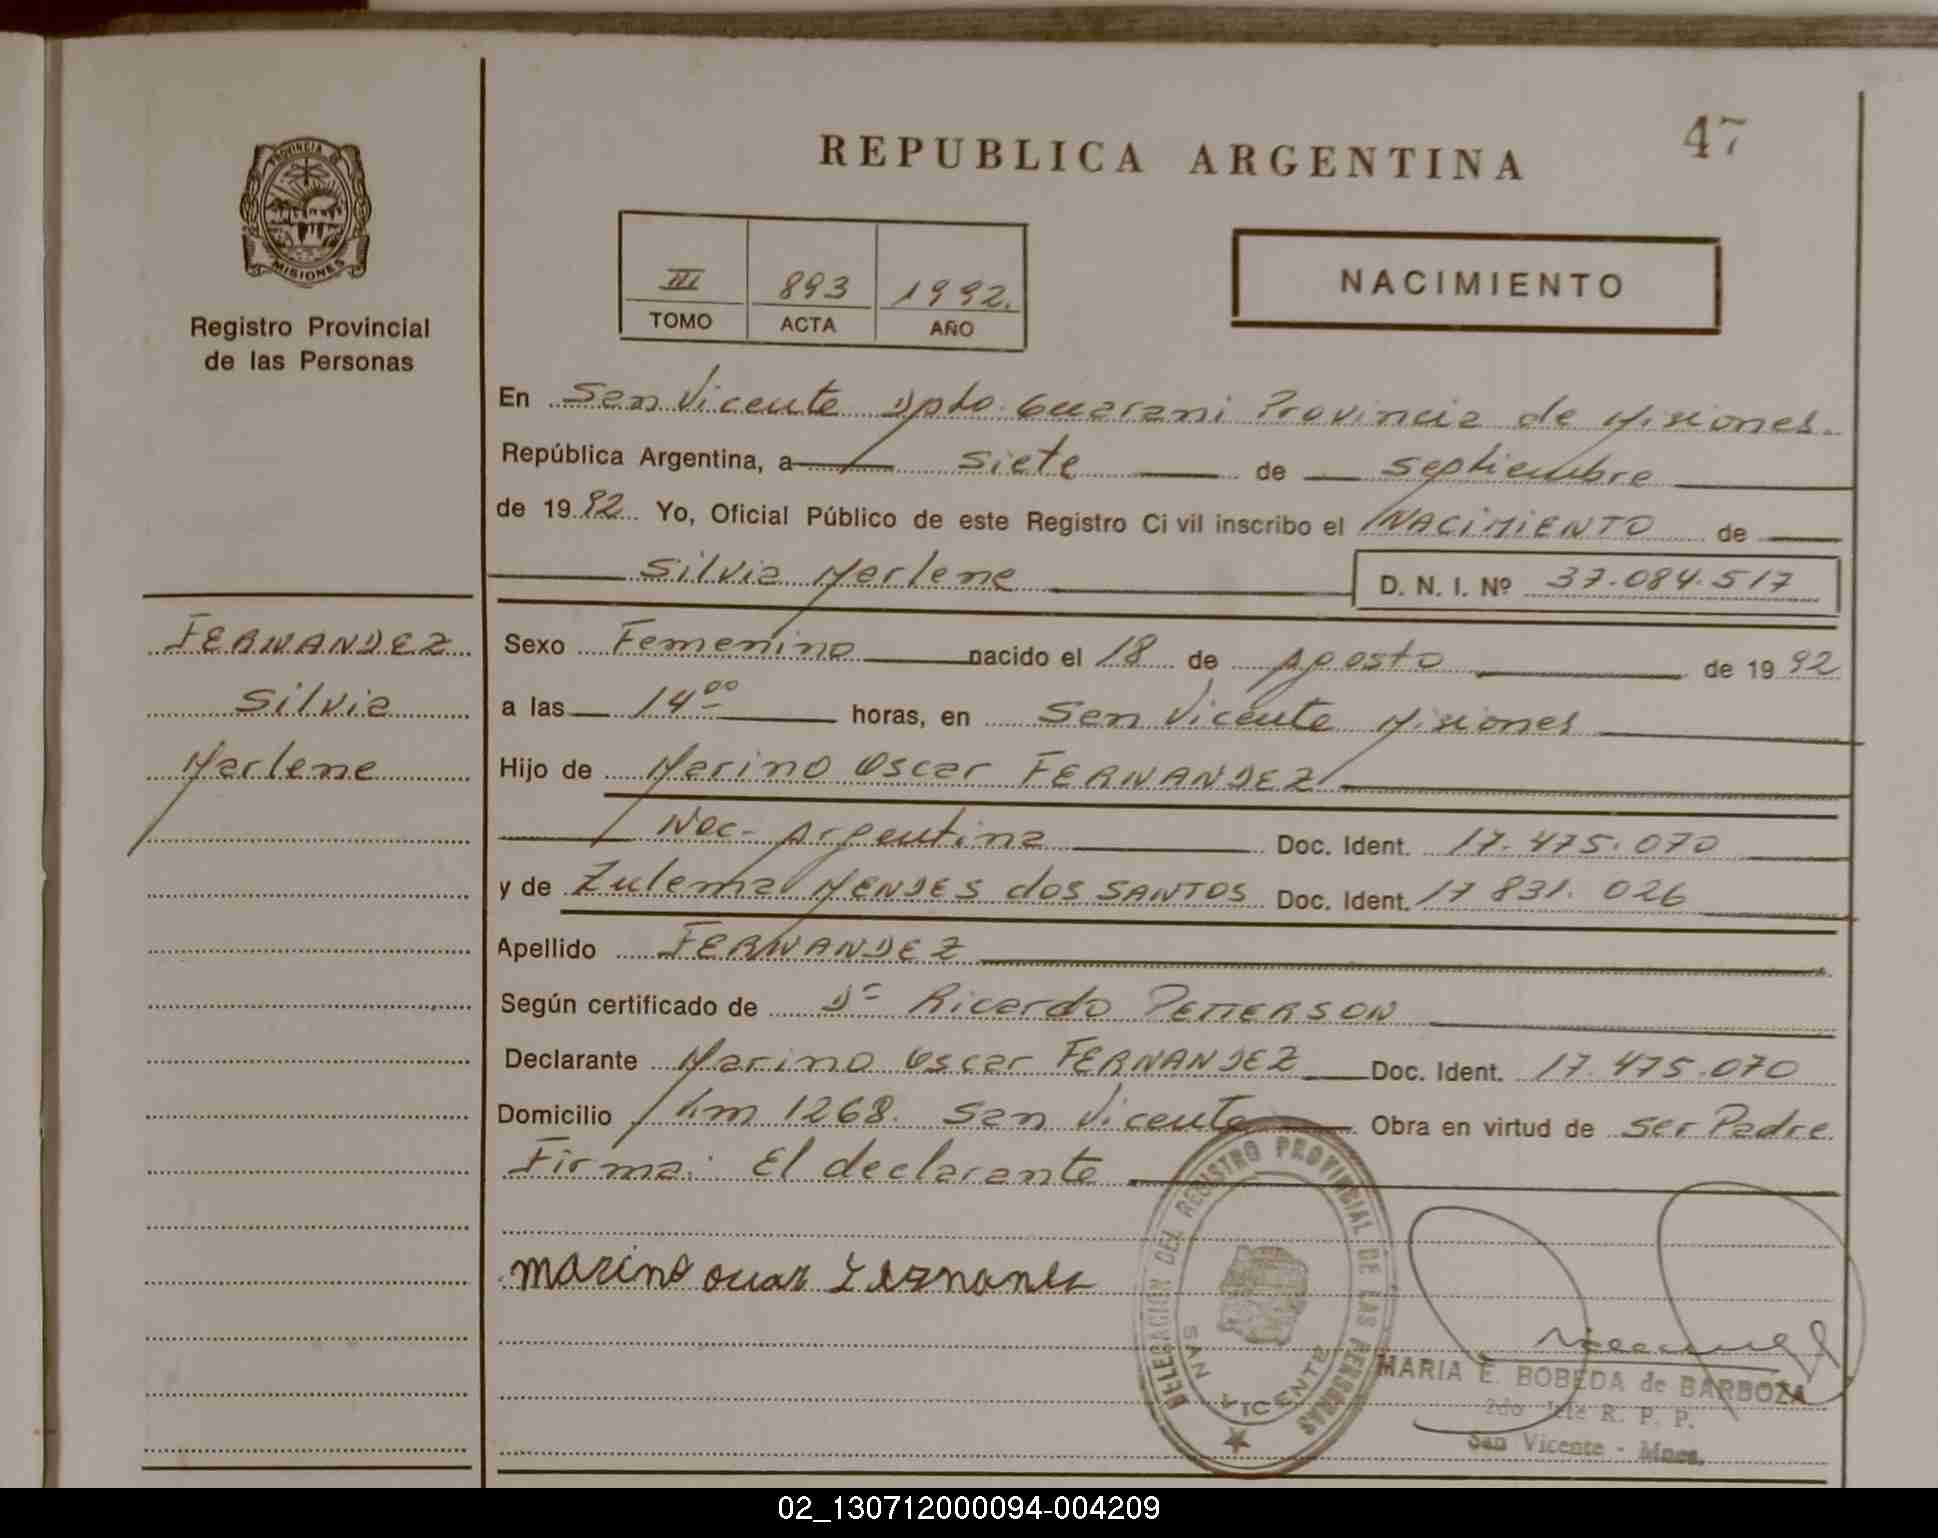 47
REPUBLICA ARGENTINA
PROVINCIA DE
MISIONES
Registro Provincial
de las Personas
III 893 1992.
TOMO ACTA AÑO
NACIMIENTO
En San Vicente Dpto. Guarani Provincia de Misiones.
República Argentina, a siete de septiembre
de 1992 Yo, Oficial Público de este Registro Ci vil inscribo el NACIMIENTO de
Silvia Marlene D. N. I. Nº 37.084.517
FERNANDEZ
Silvia
Marlene
Sexo Femenino nacido el 18 de Agosto de 1992
a las 14⁰⁰ horas, en San Vicente Misiones
Hijo de Marino Oscar FERNANDEZ
Nac. Argentina Doc. Ident. 17.475.070
y de Zulema MENDES dos SANTOS Doc. Ident. 17 831. 026
Apellido FERNANDEZ
Según certificado de Dr Ricardo PETTERSON
Declarante Marino Oscar FERNANDEZ Doc. Ident. 17.475.070
Domicilio Km 1268. San Vicente Obra en virtud de ser Padre
Firma: El declarante
DELEGACION DEL REGISTRO PROVINCIAL DE LAS PERSONAS
SAN VICENTE
MARIA E. BOBEDA de BARBOZA
2do Jefe R. P. P.
San Vicente - Mnes.
02_130712000094-004209